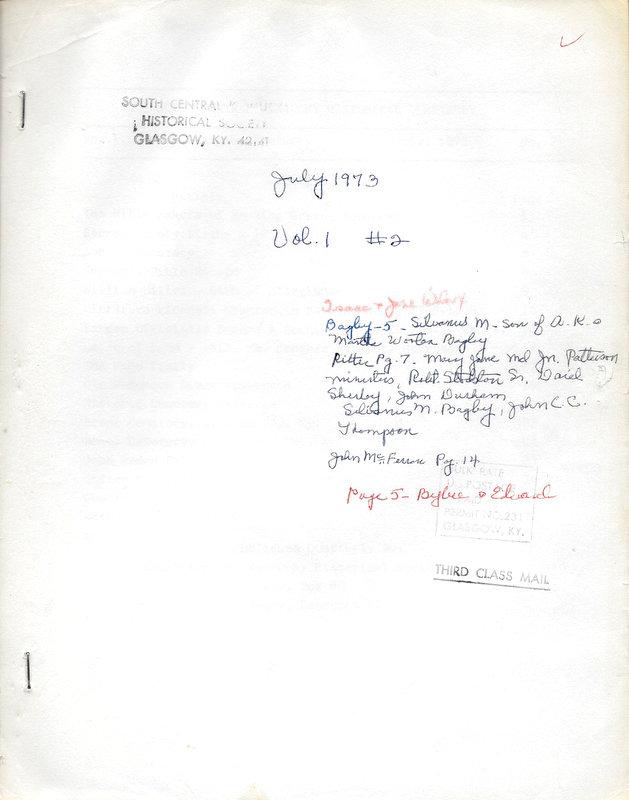 SOUTH CENTRAL
HISTORICAL SOCIETY
GLASGOW, KY. 42141
July 1973
Vol. 1 #2
Isaac & Jane
Bagby-5- Silvanus M- son of A. K. &
Martha Wooten Bagby
Ritter Pg. 7. Mary Jane md Jn. Patterson
ministers, Robt. Stockton Sr. David
Sherley, John Durham
Silvanus M. Bagby, John C. C.
Thompson
John McFerran Pg. 14
Page 5- Bybee & Edward
BULK RATE
POSTAGE
PERMIT NO. 231
GLASGOW, KY.
THIRD CLASS MAIL